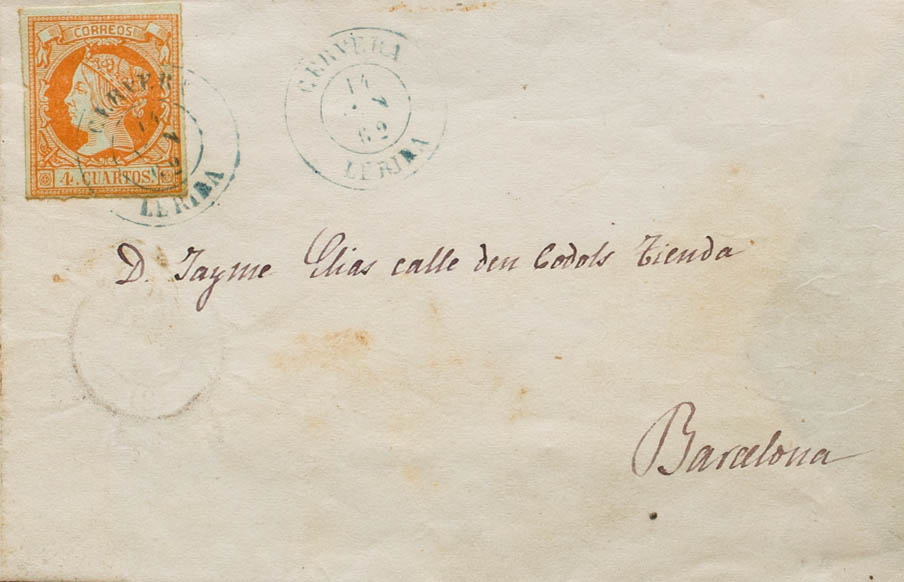 CORREOS
4 CUARTOS
CERVERA
14
62
LERIDA
CERVERA
14
62
LERIDA
D. Jayme Elias calle den Codols Tienda
Barcelona